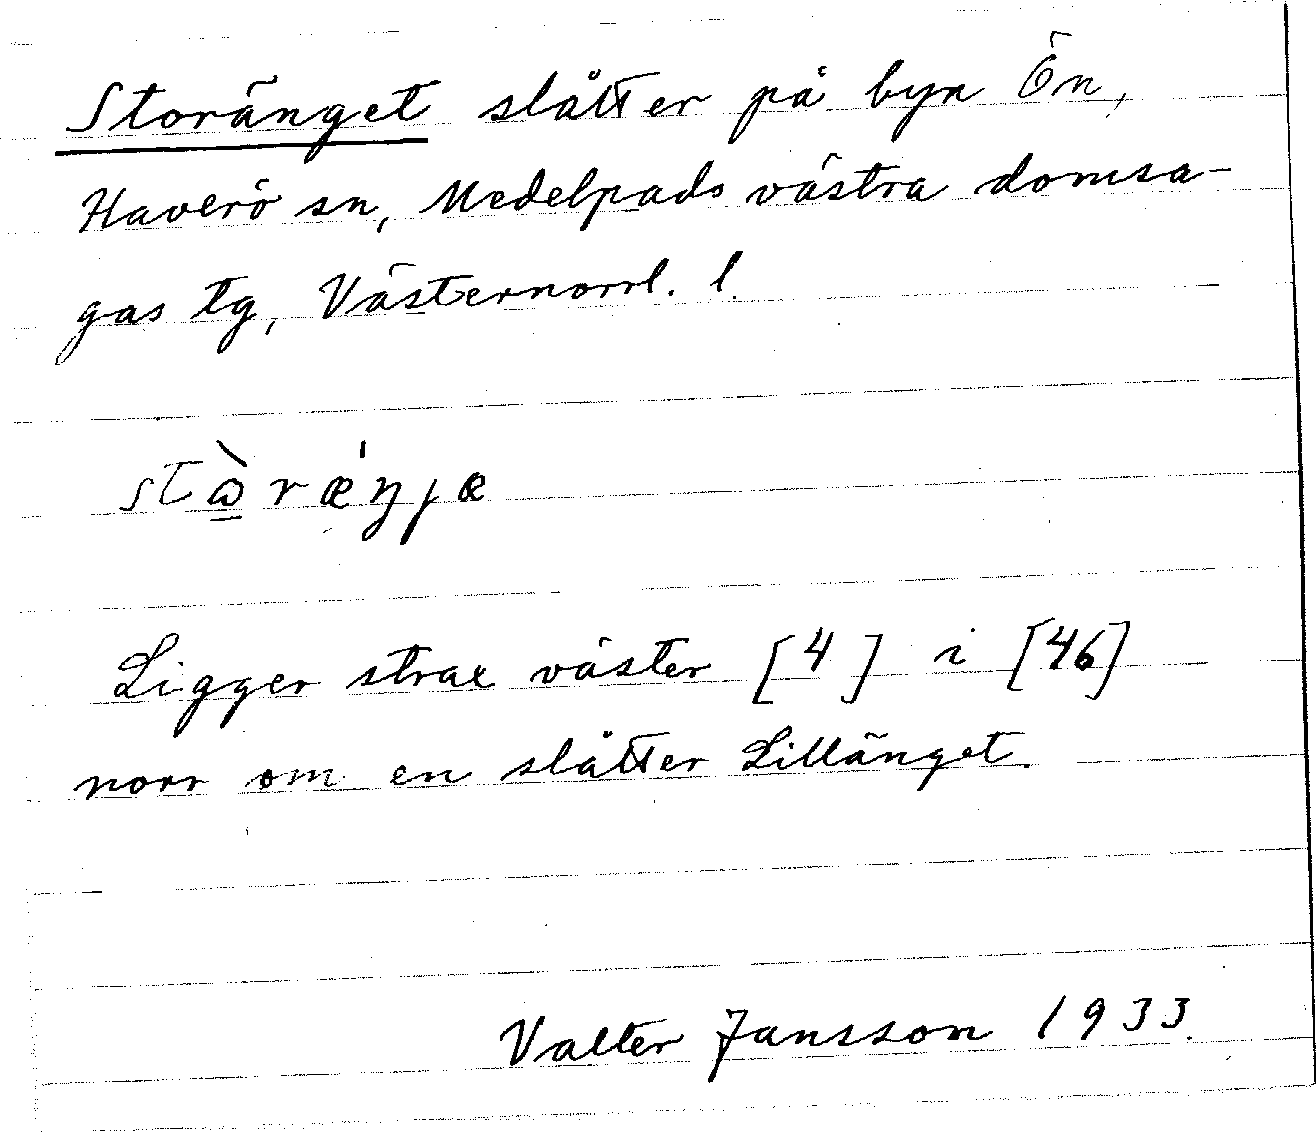 Storänget slåtter på byn Ön,
Haverö sn, Medelpads västra domsa-
gas tg, Västernorrl. l.
stɷ̠̀ræ̍ŋjæ
Ligger strax väster [4] i [46]
norr om en slåtter Lillänget.
Valter Jansson 1933.